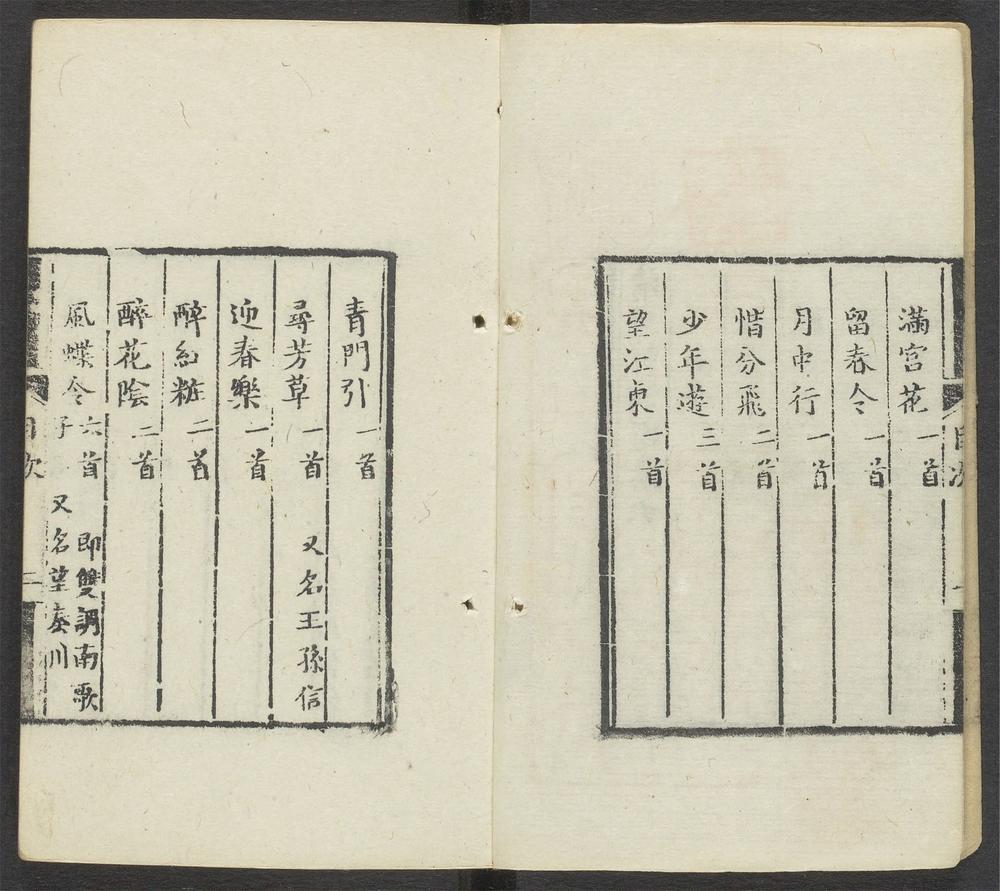 滿宮花一首
留春令一首
月中行一首
惜分飛二首
少年遊三首
望江東一首
目次
青門引一首
尋芳草一首 又名王孫信
迎春樂一首
醉紅粧二首
醉花陰二首
風蝶令六首 即雙調南歌
子 又名望秦川
目次 二